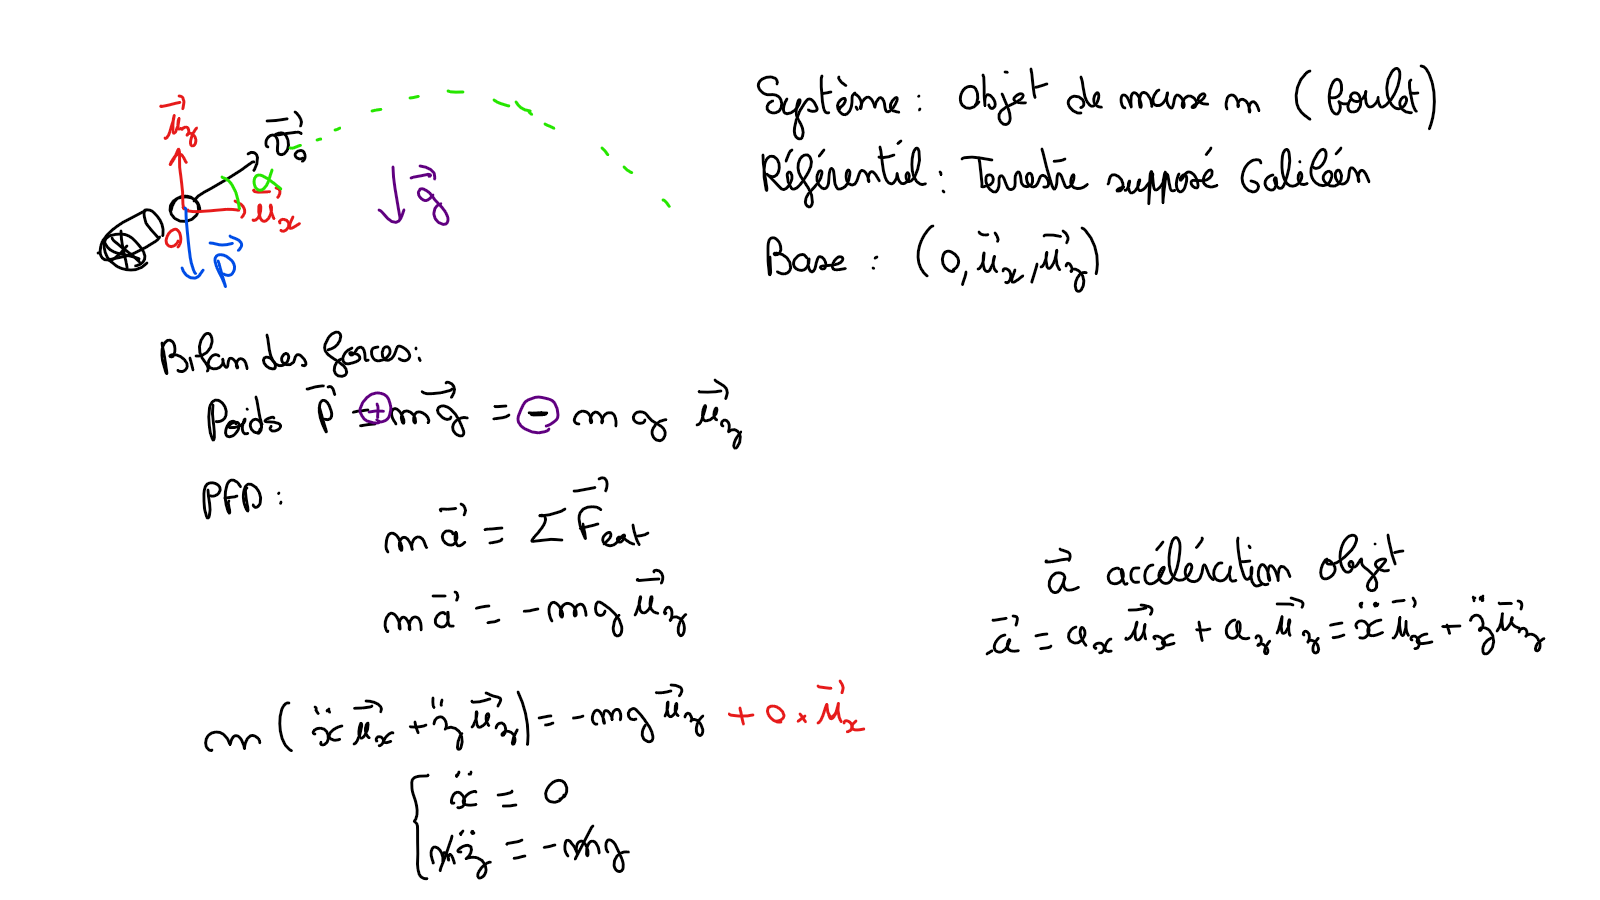 Système : Objet de masse m (boulet)
Référentiel : Terrestre supposé Galiléen
Base : (O, u⃗x, u⃗z)
u⃗z
v⃗0
α
u⃗x
O
P⃗
g⃗
Bilan des forces :
Poids P⃗ = + m g⃗ = - m g u⃗z
PFD :
m a⃗ = Σ F⃗ext
m a⃗ = - m g u⃗z
a⃗ accélération objet
a⃗ = ax u⃗x + az u⃗z = ẍ u⃗x + z̈ u⃗z
m ( ẍ u⃗x + z̈ u⃗z ) = - m g u⃗z + 0 × u⃗x
{ ẍ = 0
m z̈ = - m g